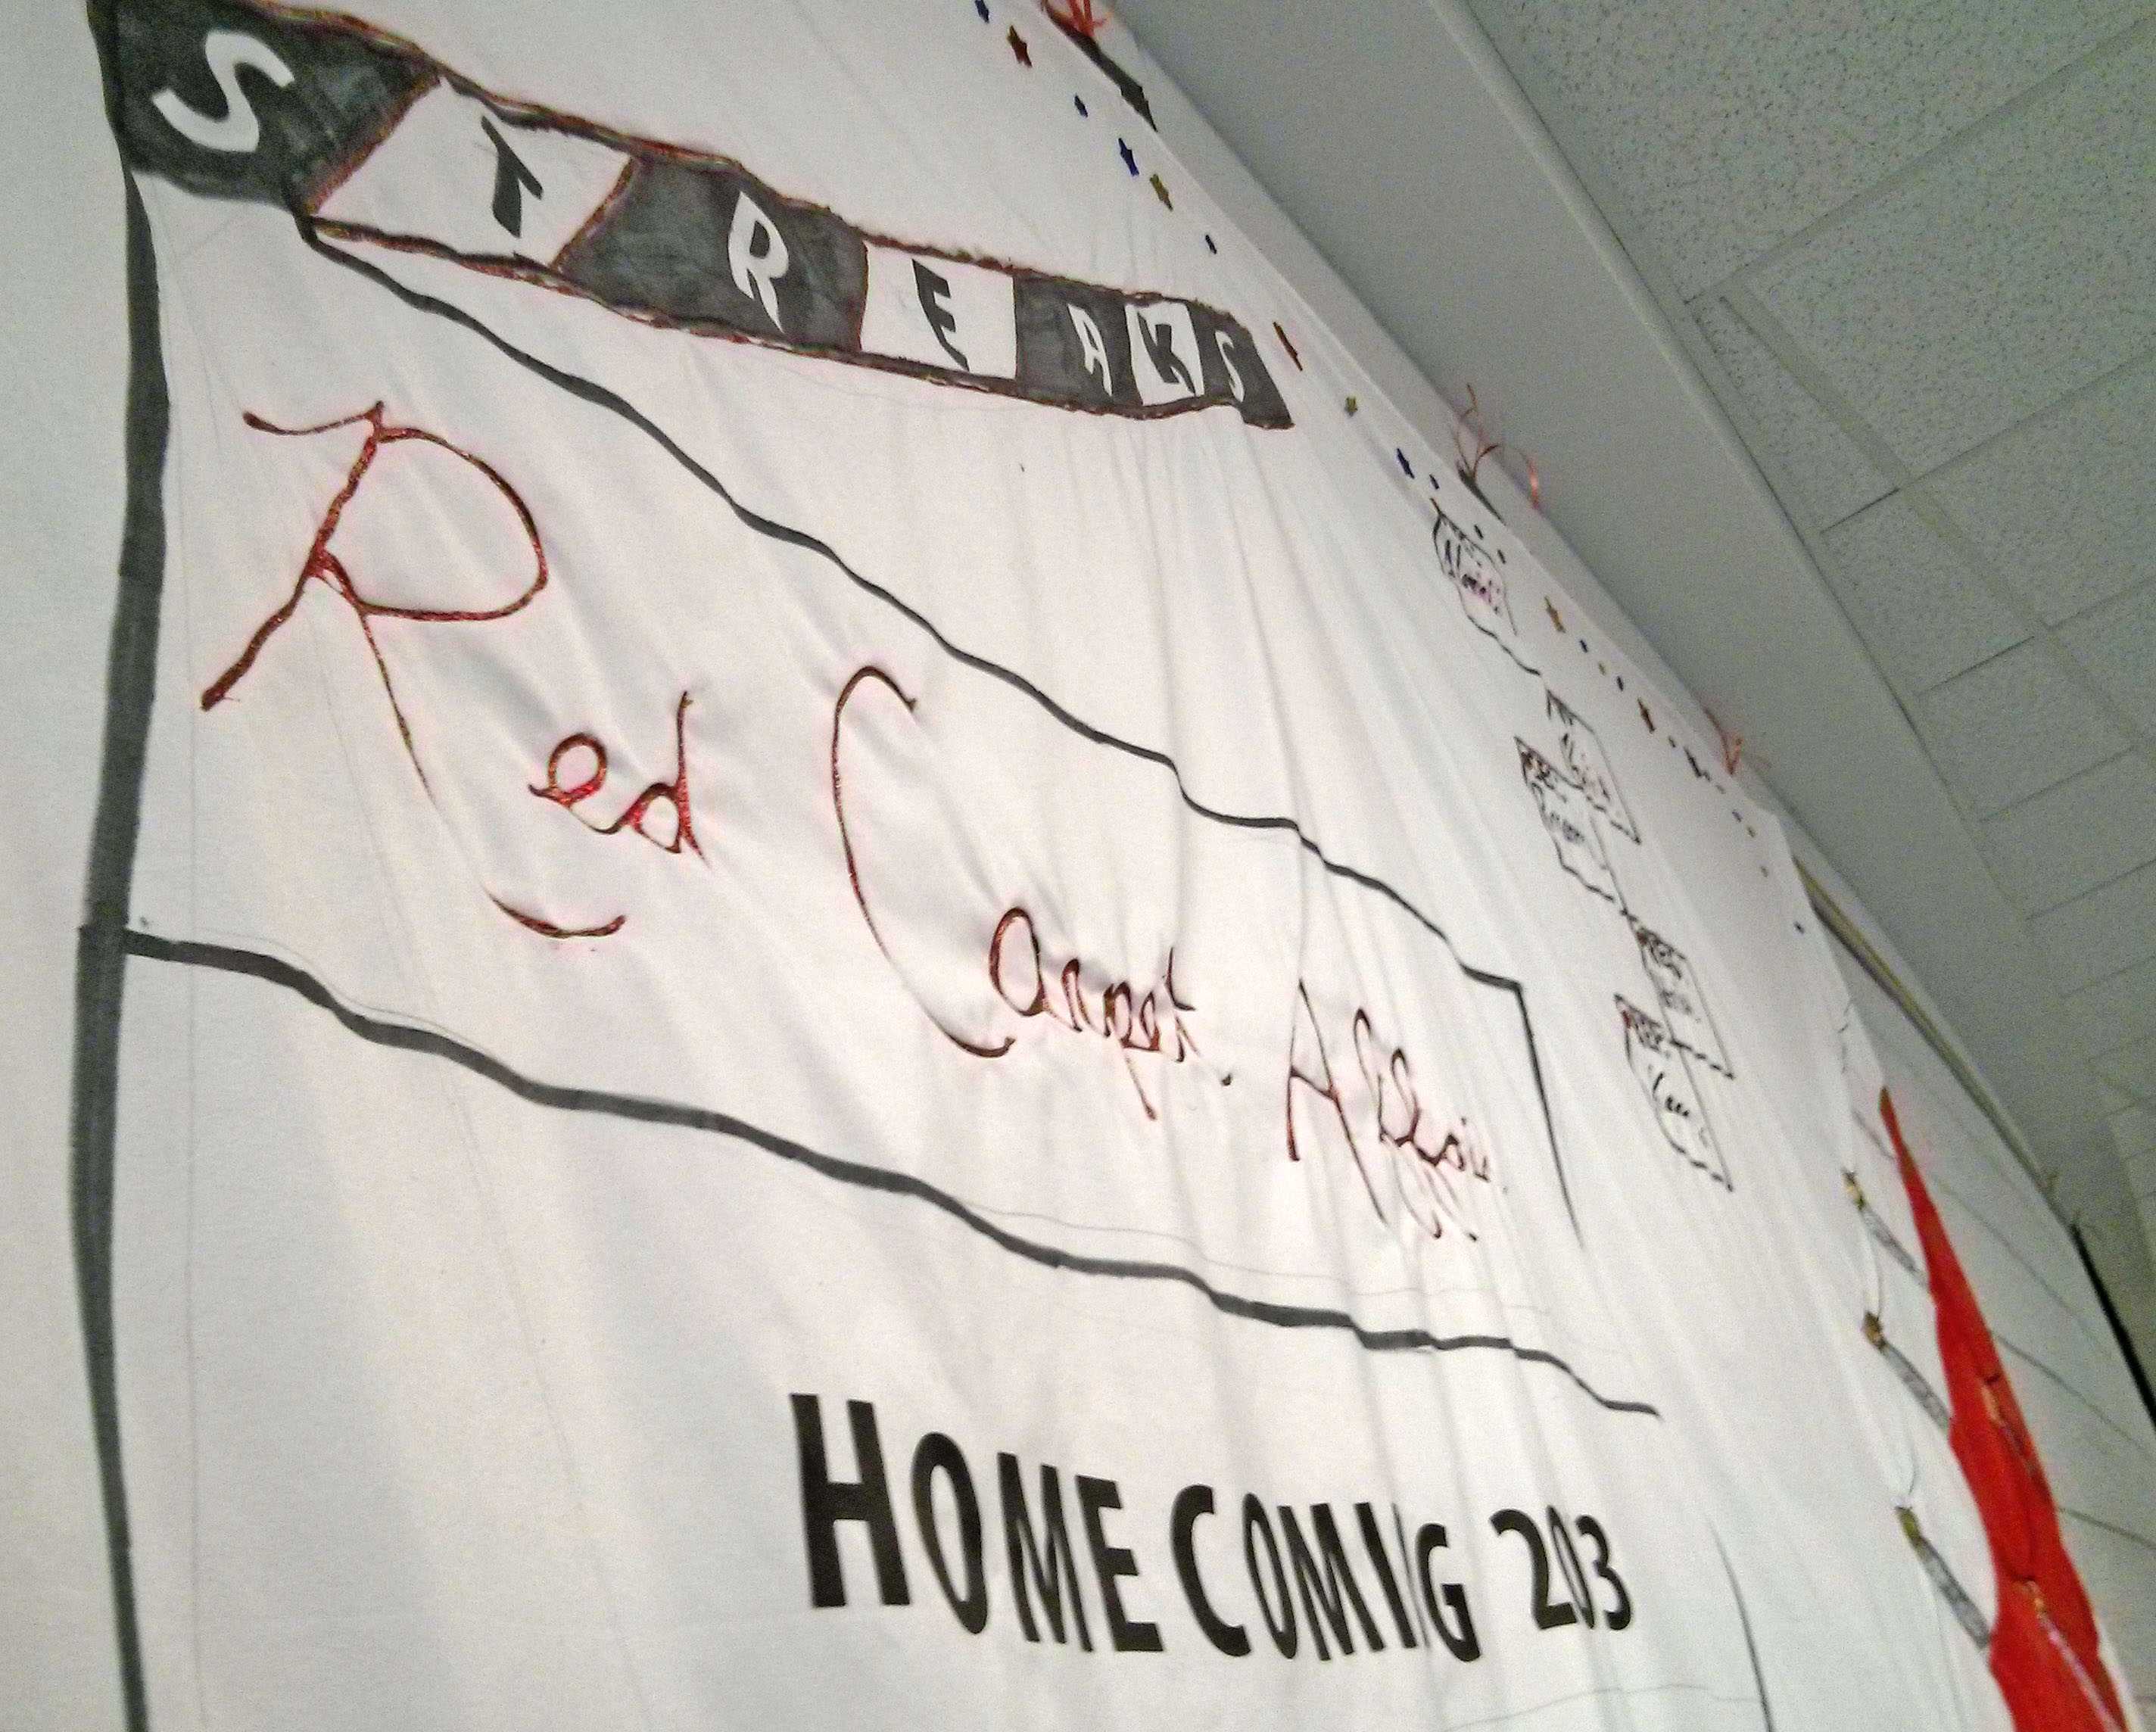 STREAKS
Red Carpet Affair
HOMECOMING 203